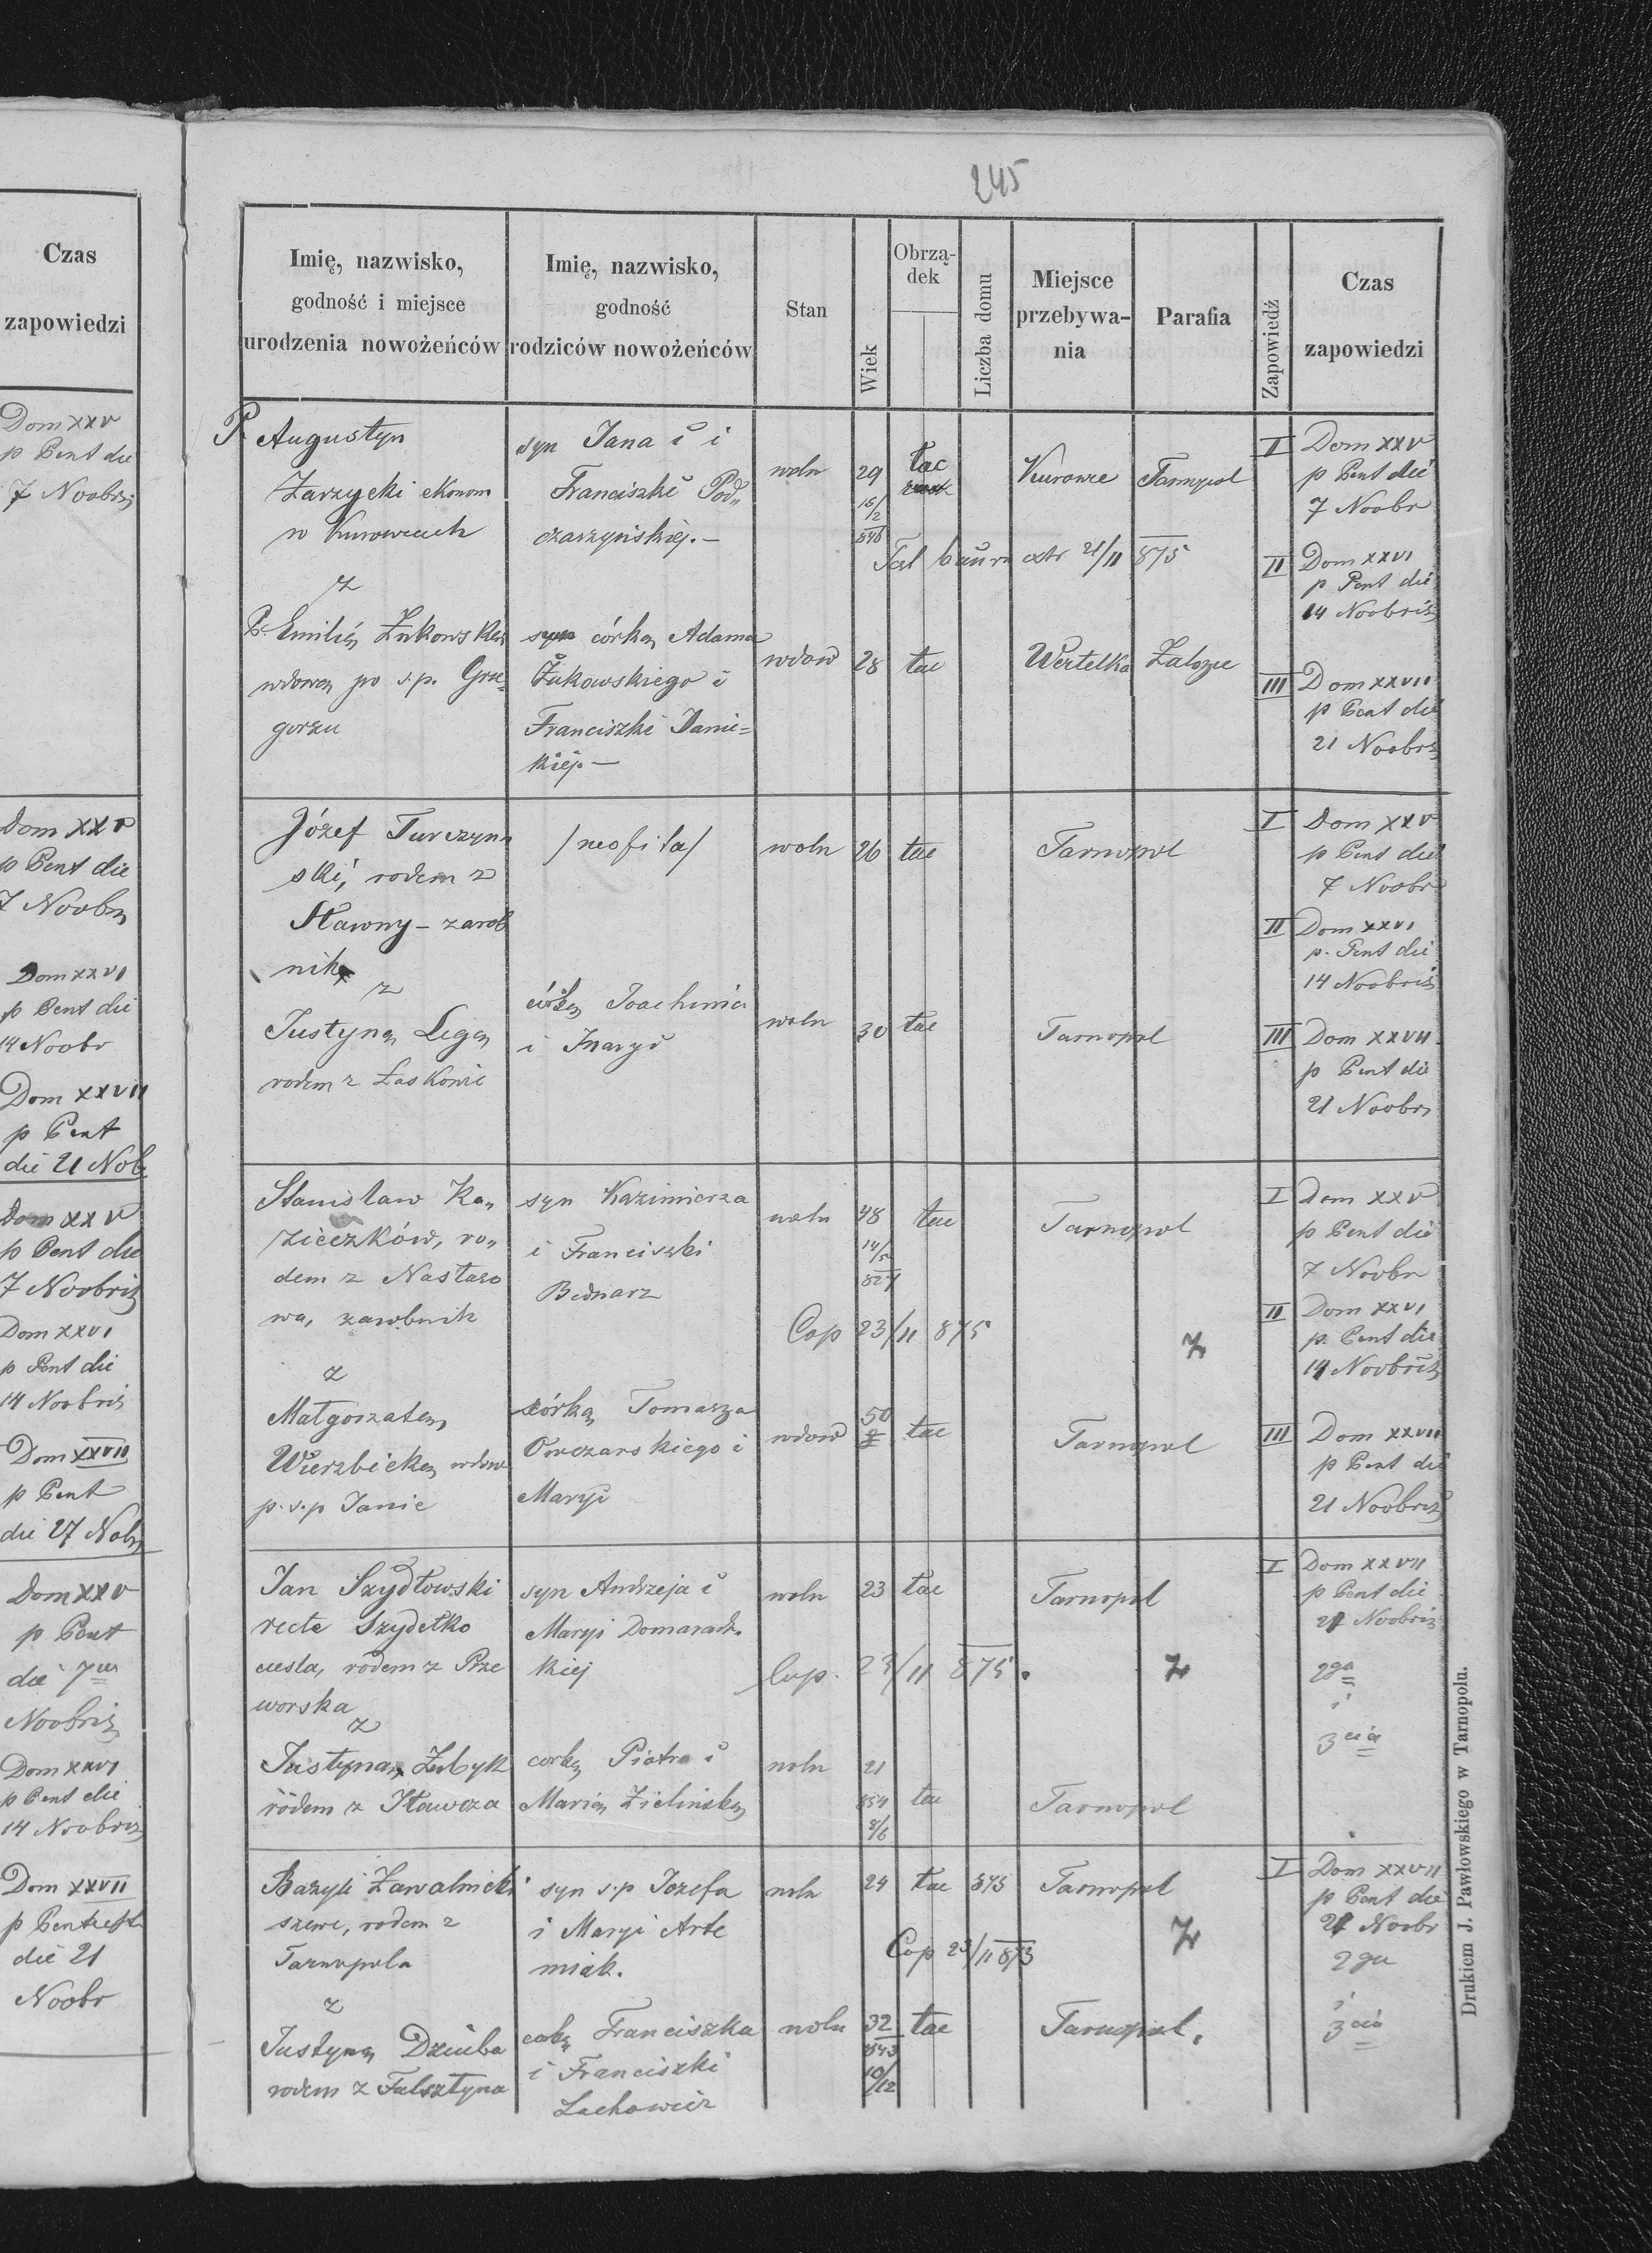 Czas
zapowiedzi
Dom XXV
p Pent die
7 Noobris
Dom XXV
p Pent die
7 Noobris
Dom XXVI
p Pent die
14 Noobr
Dom XXVII
p Pent
die 21 Nob
Dom XXV
p Pent die
7 Noobris
Dom XXVI
p Pent die
14 Noobris
Dom XXVII
p Pent
die 27 Nobr
Dom XXV
p. Pent
die 7
Noobris
Dom XXVI
p Pent die
14 Noobris
Dom XXVII
p Pentecost
die 21
Noobr
245
Imię, nazwisko,
godność i miejsce
urodzenia nowożeńców
Imię, nazwisko,
godność
rodziców nowożeńców
Stan
Wiek
Obrzą-
dek
Liczba domu
Miejsce
przebywa-
nia
Parafia
Zapowiedź
Czas
zapowiedzi
P. Augustyn
Zarzycki ekonom
w Kurowcach
z
P. Emilią Żukowską
wdową po s.p. Grze-
gorzu
syn Jana i i
Franciszki Pod-
czarzyńskiej.-
córką Adama
Żukowskiego i
Franciszki Danie-
kiej.-
woln 29 tac Kurowce Tarnopol
16/2
846
21/11 875
wdow 28 tac Wertelka Załoźce
I Dom XXV
p Pent die
7 Noobr
II Dom XXVI
p Pent die
14 Noobris
III Dom XXVII
p Pent die
21 Noobris
Józef Turczyn-
ski, rodem z
Sławny - zarob
nik
z
Justyną Legą
rodem z Łaskowic
/neofita/
córką Joachima
i Maryi
woln 26 tac Tarnopol
woln 30 tac Tarnopol
I Dom XXV
p Pent die
7 Noobr
II Dom XXVI
p. Pent die
14 Noobris
III Dom XXVII
p Pent die
21 Noobr
Stanisław Ko-
zieczków, ro-
dem z Nastaso
wa, zarobnik
z
Małgorzatą
Wierzbicką wdow
p. s.p Janie
syn Kazimierza
i Franciszki
Bednarz
córką Tomasza
Owczarskiego i
Maryi
woln 48 tac Tarnopol
14/5
827
Cop 23/11 875
Z
wdow 50 tac Tarnopol
I Dom XXV
p Pent die
7 Noobr
II Dom XXVI
p. Pent die
14 Noobris
III Dom XXVII
p Pent die
21 Noobris
Jan Szydłowski
recte Szydełko
ciesla, rodem z Prze
worska
z
Justyną Zubyk
rodem z Iławcza
syn Andrzeja i
Maryi Domaradz-
kiej
corką Piotra i
Marią Zielinską
woln 23 tac Tarnopol
Cop. 23/11 875.
Z
woln 21
854
8/6
tac Tarnopol
I Dom XXVII
p Pent die
21 Noobris
2ga
i
3cia
Bazyli Zawalnicki
szewc, rodem z
Tarnopola
z
Justyną Dziuba
rodem z Falsztyna
syn s.p Jozefa
i Maryi Arte
miak.
corką Franciszka
i Franciszki
Lachowicz
woln 24 tac 375 Tarnopol
Cop 23/11 873
Z
woln 32 tac Tarnopol.
843
10/12
I Dom XXVII
p Pent die
21 Noobr
2ga
i
3cia
Drukiem J. Pawłowskiego w Tarnopolu.